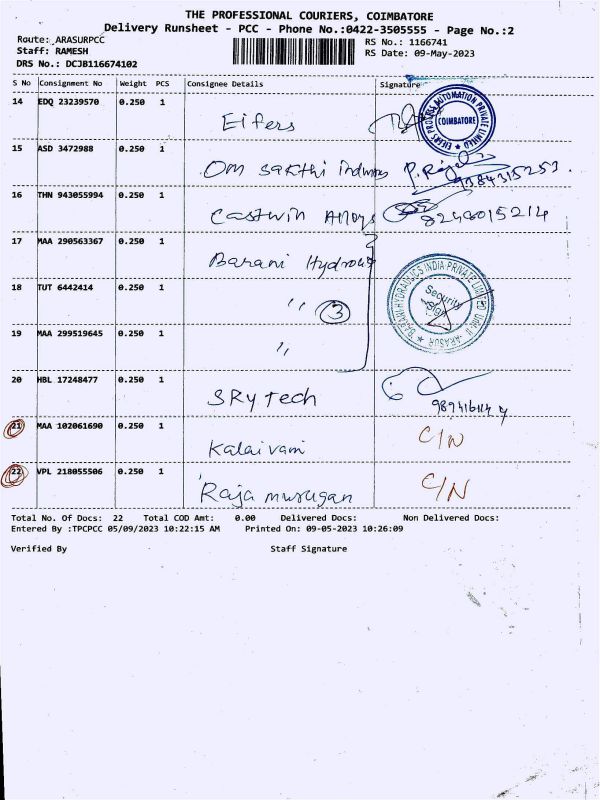 THE PROFESSIONAL COURIERS, COIMBATORE
Delivery Runsheet - PCC - Phone No.:0422-3505555 - Page No.:2
Route: ARASURPCC RS No.: 1166741
Staff: RAMESH RS Date: 09-May-2023
DRS No.: DCJB116674102
S No Consignment No Weight PCS Consignee Details Signature
14 EDQ 23239570 0.250 1 Eifers
EIFERS PROCESS AUTOMATION PRIVATE LIMITED ★
COIMBATORE
15 ASD 3472988 0.250 1 Om Sakthi
9384315253.
16 THN 943055994 0.250 1 Castwin Alloys 8248015214
17 MAA 290563367 0.250 1 Barani
18 TUT 6442414 0.250 1 〃 3
BARANI HYDRAULICS INDIA PRIVATE LIMITED Unit II ARASUR ★
Security
Sign
19 MAA 299519645 0.250 1 〃
20 HBL 17248477 0.250 1 SRy tech
21 MAA 102061690 0.250 1 Kalaivani C/N
22 VPL 218055506 0.250 1 Raja murugan C/N
Total No. Of Docs: 22 Total COD Amt: 0.00 Delivered Docs: Non Delivered Docs:
Entered By :TPCPCC 05/09/2023 10:22:15 AM Printed On: 09-05-2023 10:26:09
Verified By Staff Signature